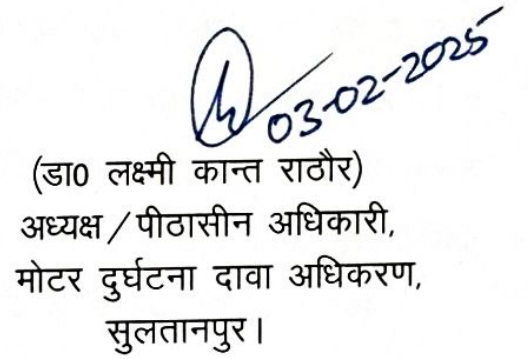 03-02-2025
(डा0 लक्ष्मी कान्त राठौर)
अध्यक्ष/पीठासीन अधिकारी,
मोटर दुर्घटना दावा अधिकरण,
सुलतानपुर।